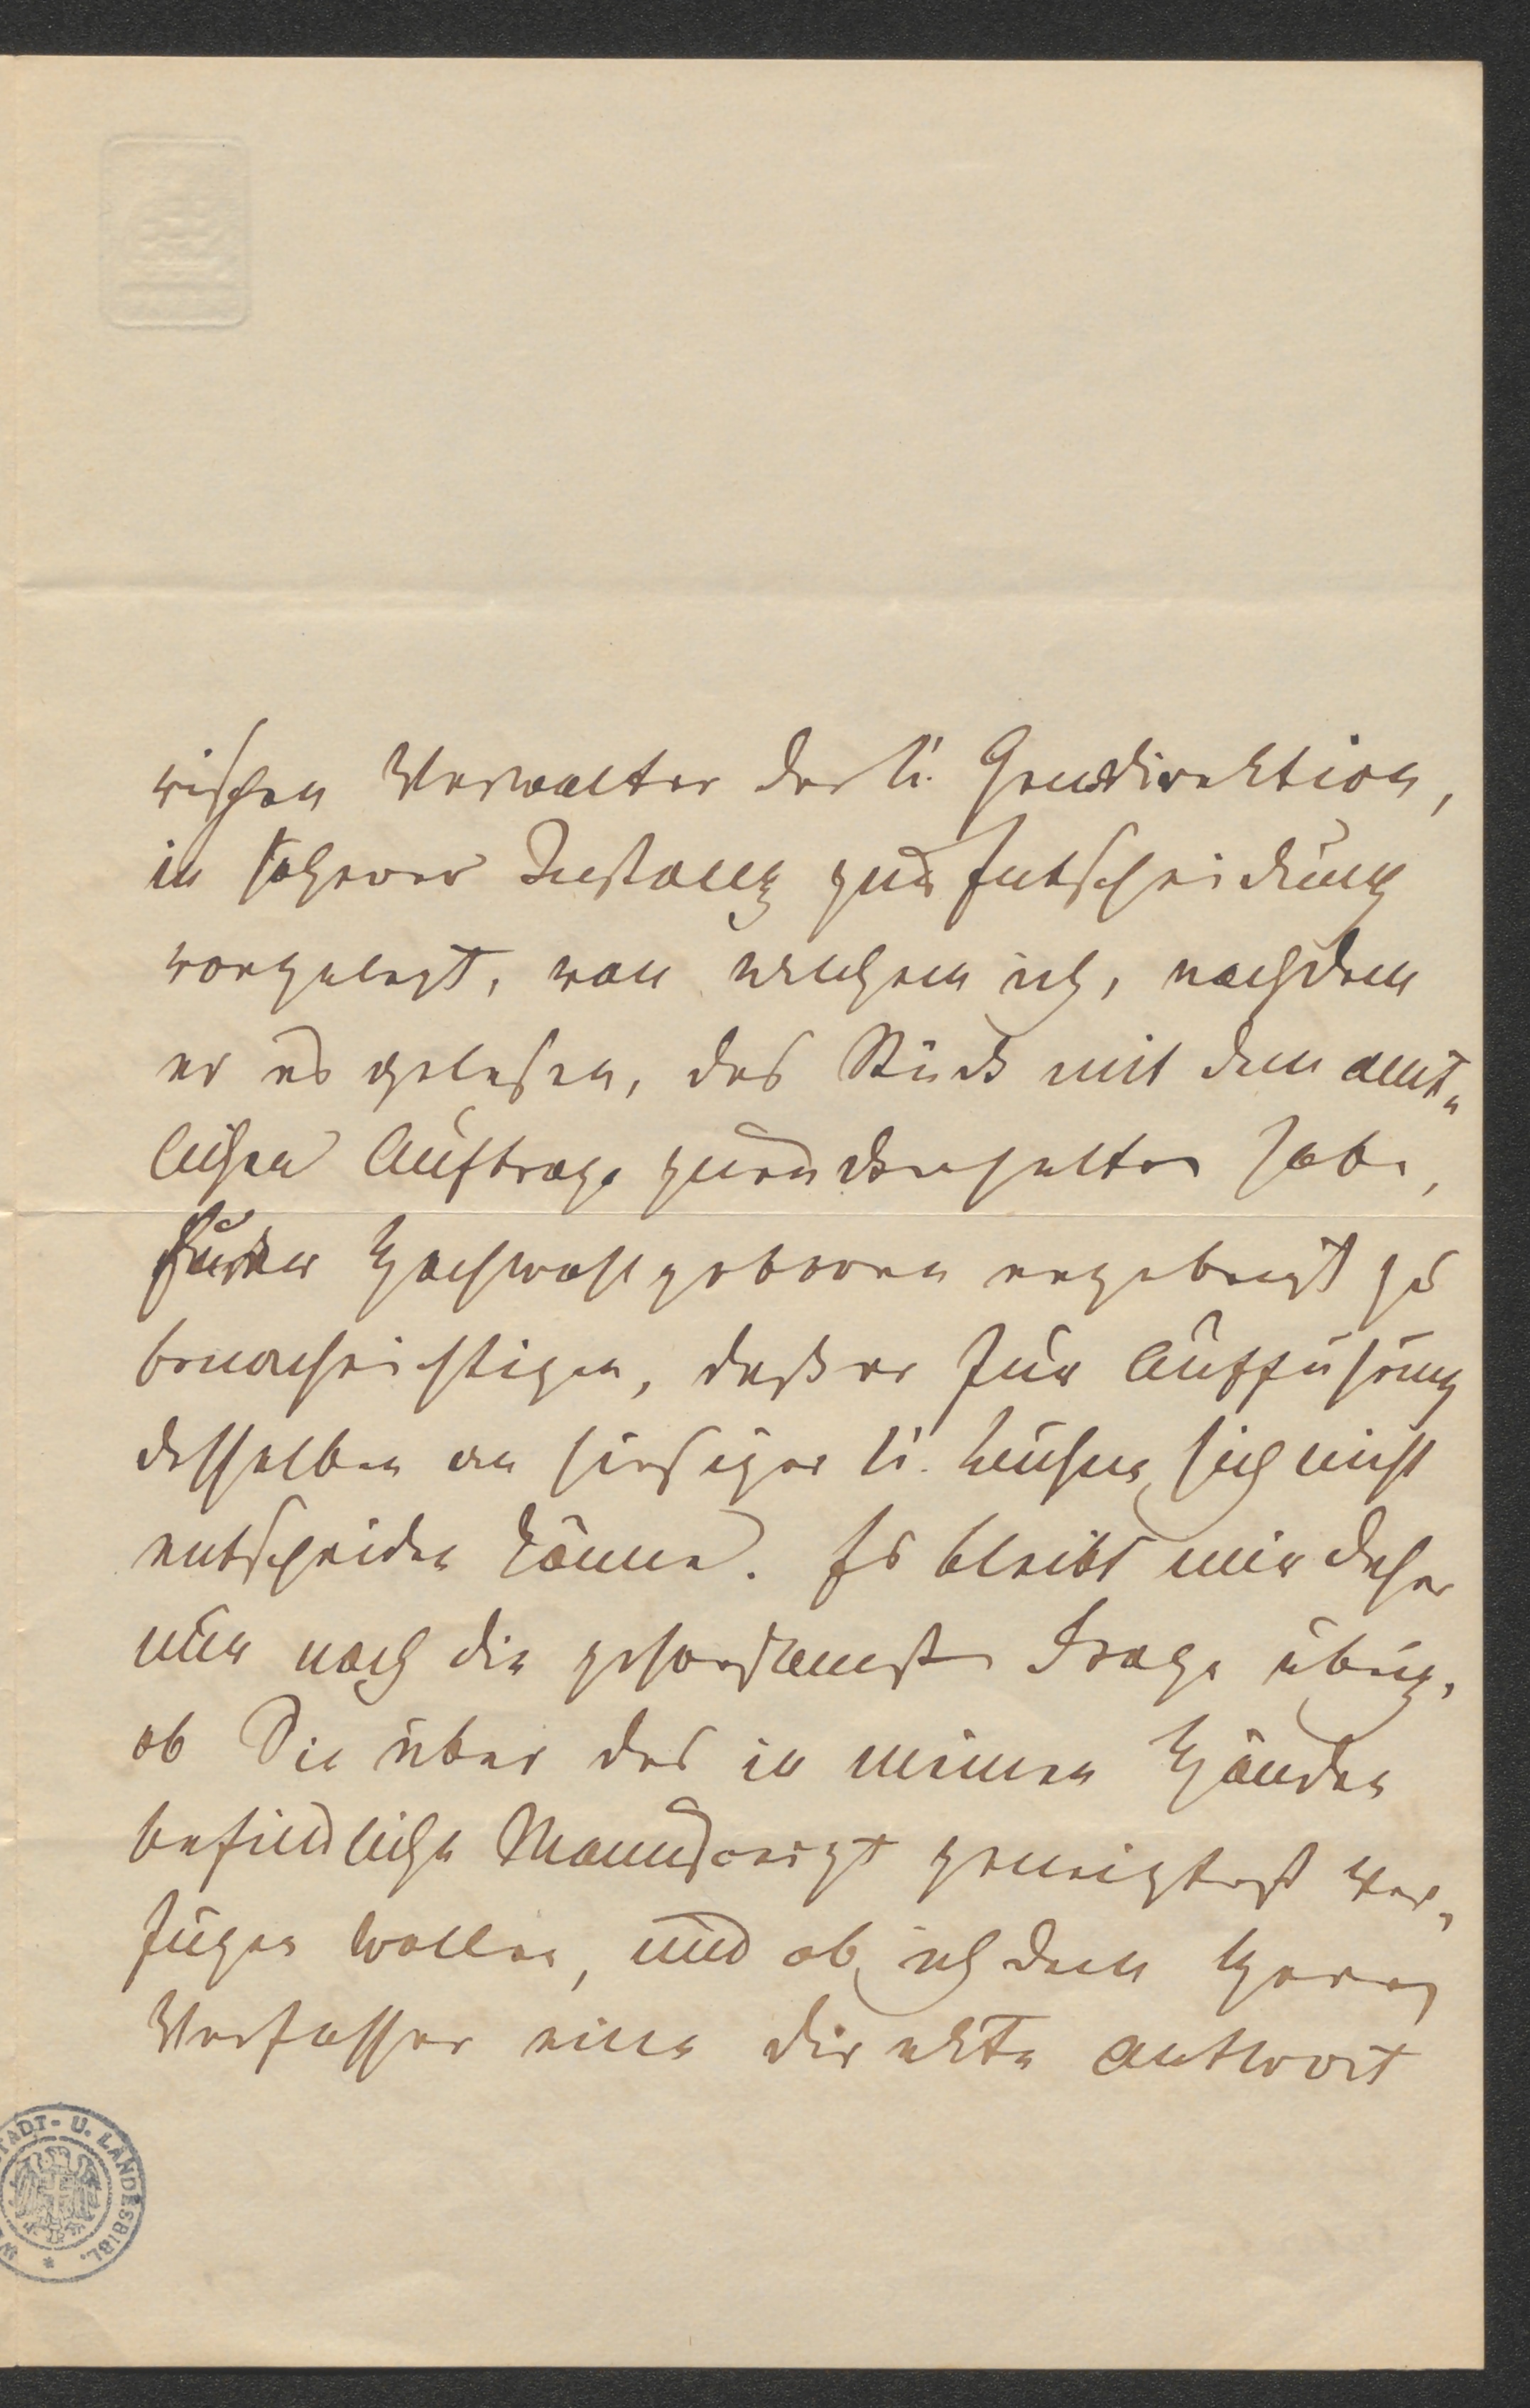 rischen Verwalter der k. Gendirektion,
in höherer Instanz zur Entscheidung
vorgelegt, von welchem ich, nachdem
er es gelesen, das Stück mit dem amt„
lichen Auftrage zurückerhalten habe,
Euer Hochwohlgeboren ergebenst zu
benachrichtigen, daß er für Aufführung
desselben an hiesiger k. Bühne sich nicht
entscheiden könne. Es bleibt mir daher
nur noch die gehorsamste Frage übrig,
ob Sie über das in meinen Händen
befindliche Manuscript geneigtest ver„
fügen wollen, und ob ich dem Herrn
Verfasser eine direkte Antwort
STADT- U. LANDESBIBL. *